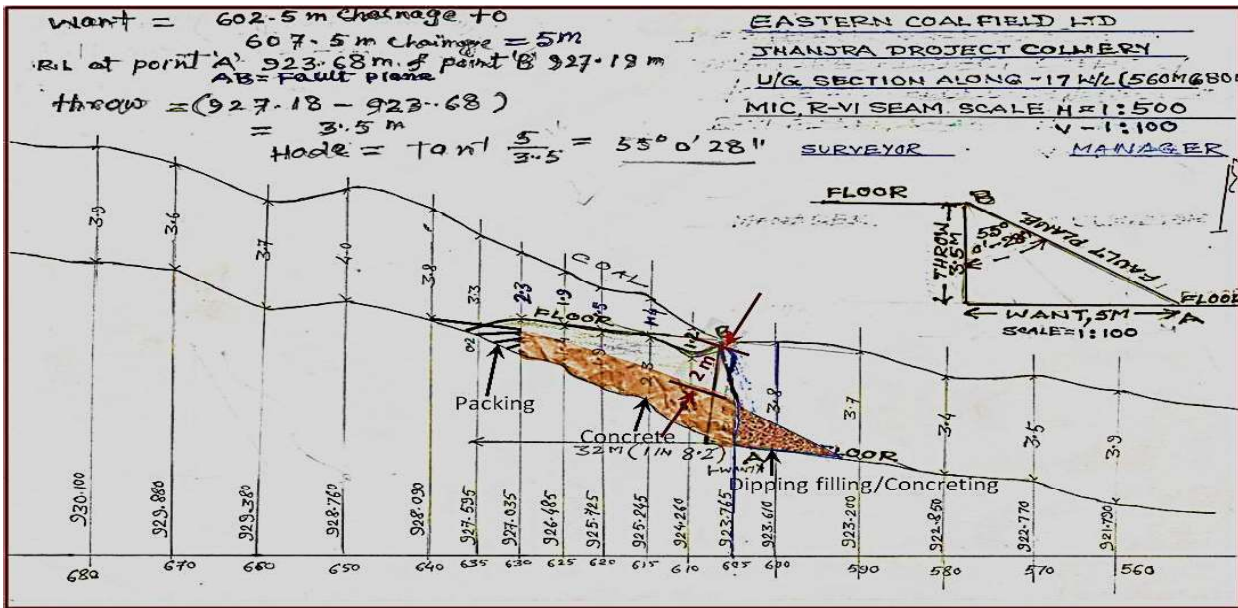 Want = 602.5 m chainage to
607.5 m chainage = 5m
R.L at point 'A' 923.68 m. & point 'B' 927.18 m
AB = Fault plane
throw = (927.18 - 923.68)
= 3.5 m
Hade = tan' 5/3.5 = 55° 0' 28"
EASTERN COALFIELD LTD
JHANJRA PROJECT COLLIERY
U/G SECTION ALONG -17 W/L (560M 680
MIC, R-VI SEAM. SCALE H = 1:500
V - 1:100
SURVEYOR MANAGER
FLOOR
B
THROW
3.5M
55°
0'-28"
FAULT PLANE
FLOOR
WANT, 5M
A
SCALE = 1:100
3.9
3.6
3.7
4.0
3.8
3.3
2.3
1.9
COAL
FLOOR
B
2m
3.8
3.7
3.4
3.5
3.9
0.2
Packing
Concrete
32M (1 IN 8.2)
WANT
A
FLOOR
Dipping filling/Concreting
930.100 929.880 929.380 928.760 928.090 927.595 927.035 926.485 925.725 925.245 924.260 923.765 923.610 923.200 922.850 922.770 921.790
680 670 660 650 640 635 630 625 620 615 610 605 600 590 580 570 560